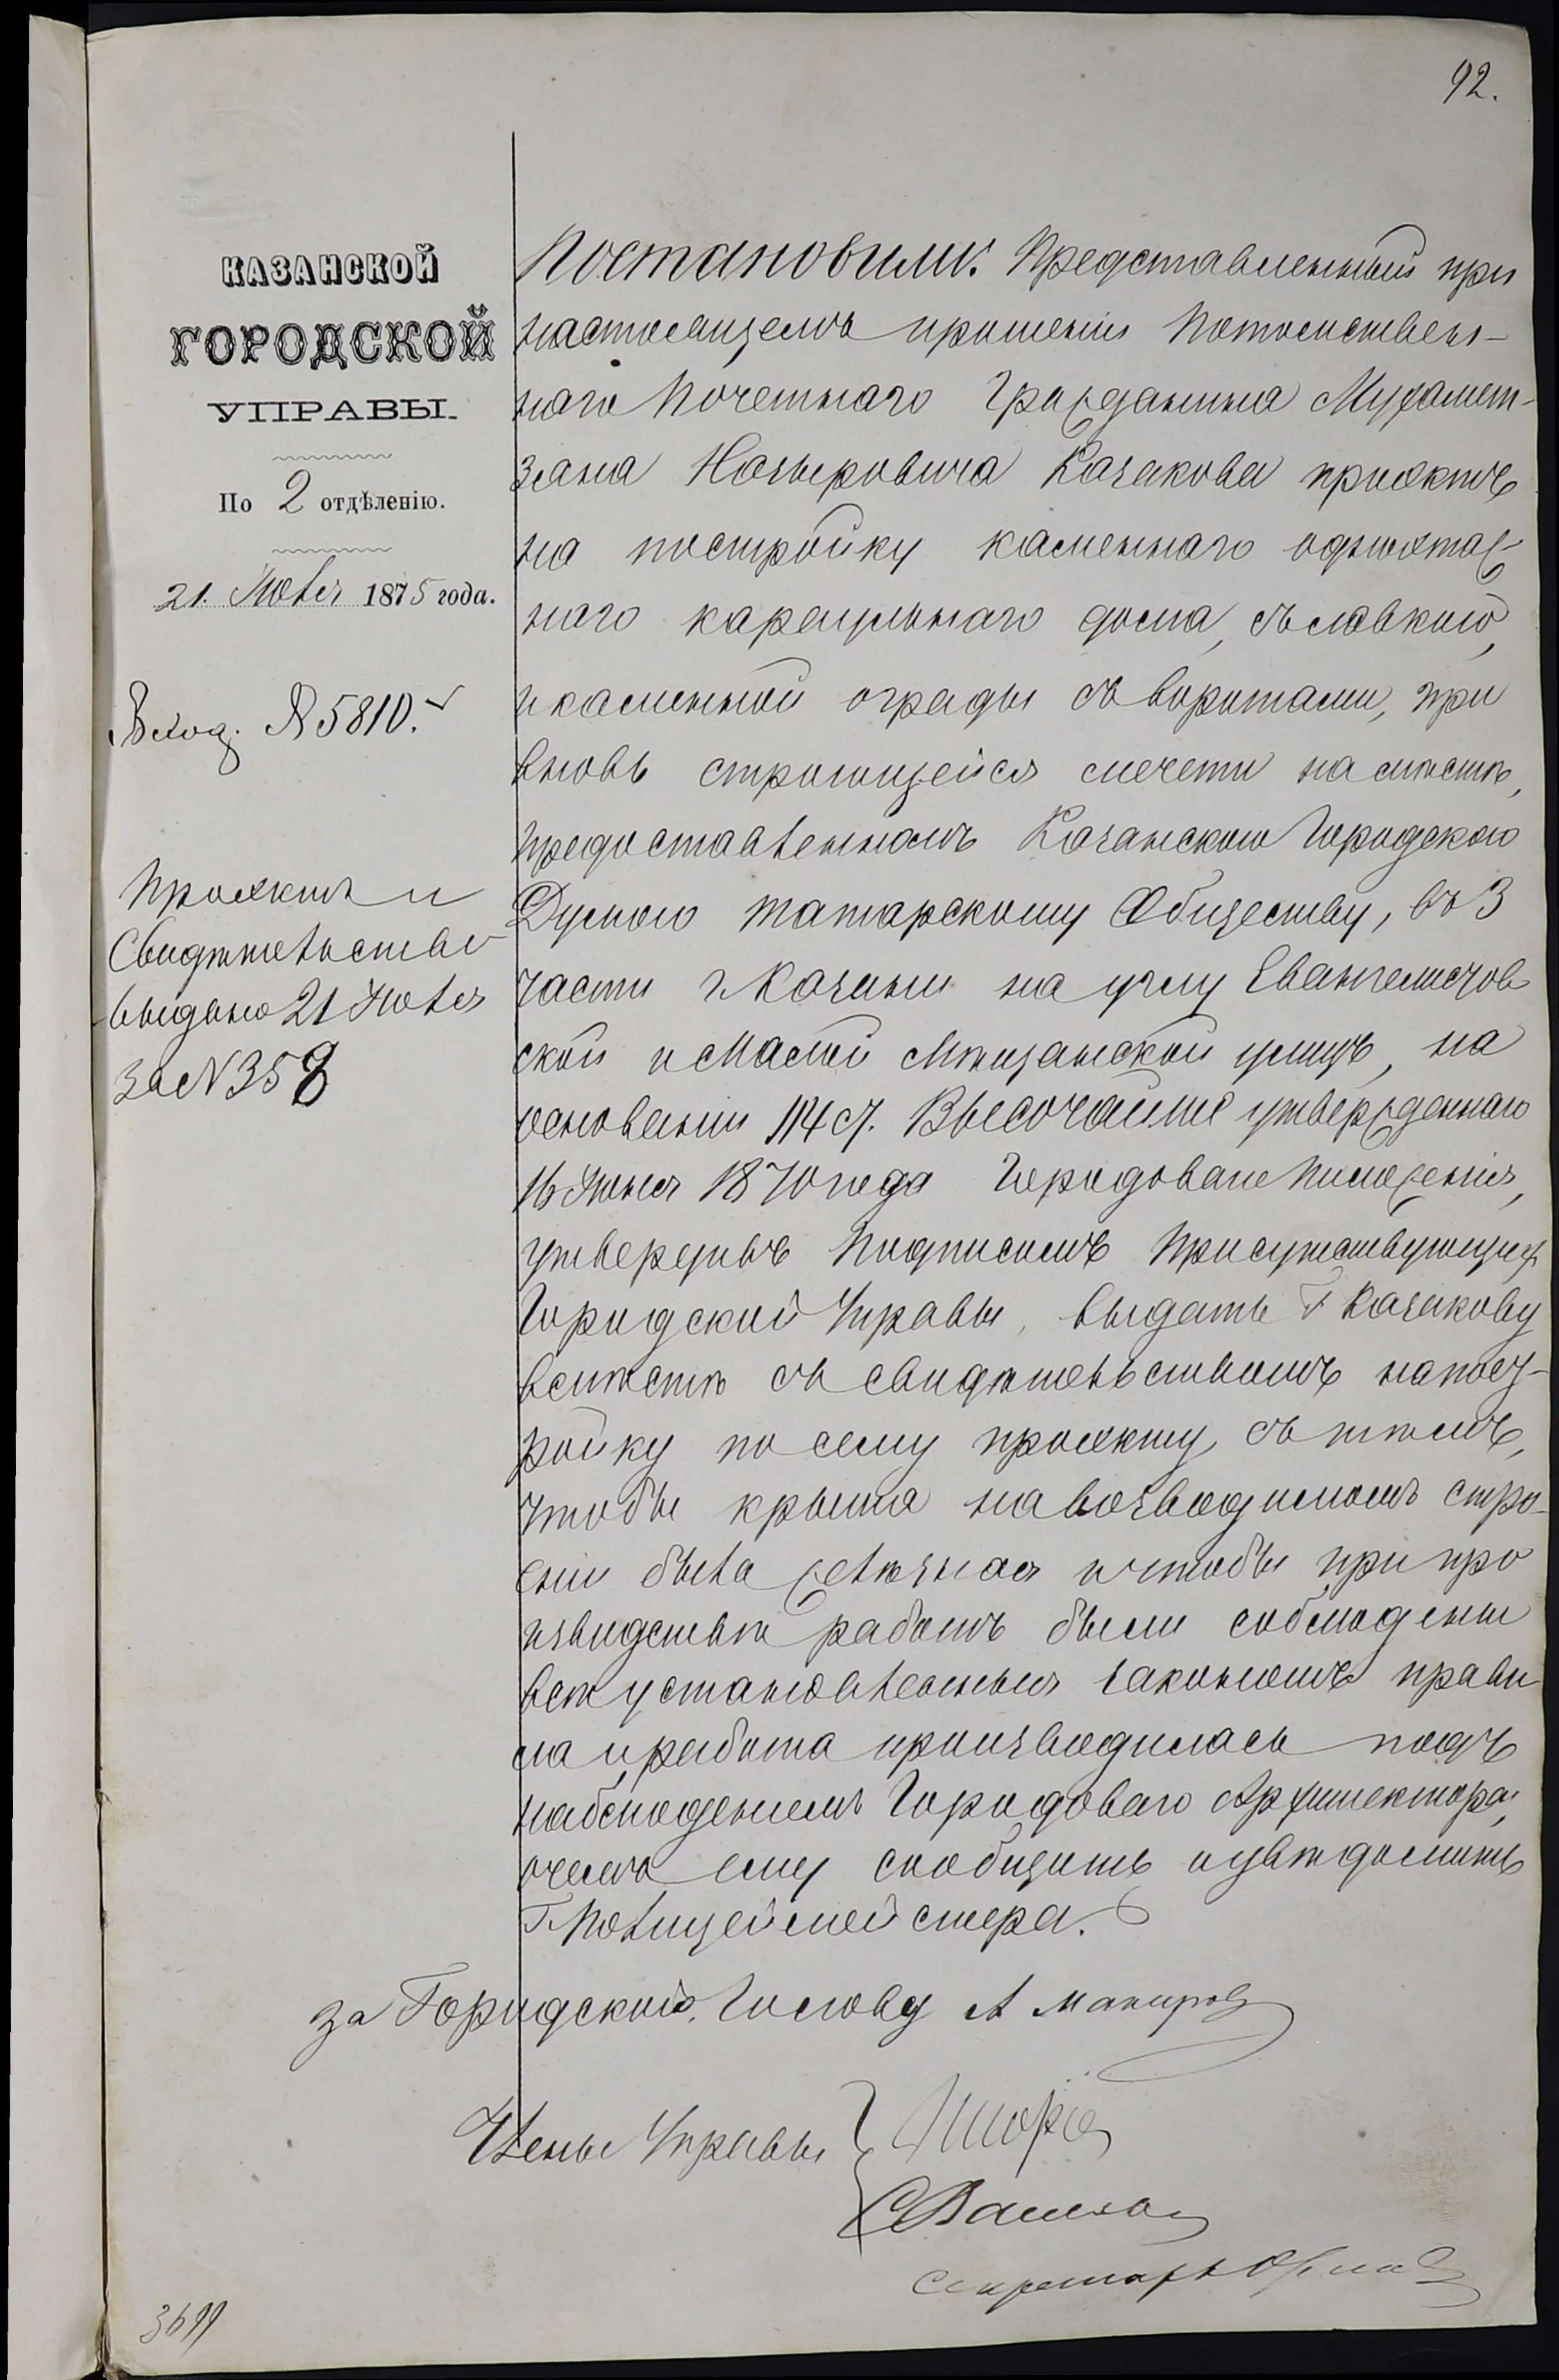 92.
КАЗАНСКОЙ
ГОРОДСКОЙ
УПРАВЫ.
По 2 отдѣленію.
21. Июля 1875 года.
Вход. № 5810.
Проэктъ и
Свидѣтельство
выдано 21 Июля
за № 358
Постановили: Представленный при
настоящемъ прошеніи Потомствен-
наго Почетнаго Гражданина Мухамет-
зяна Назыровича Казакова проэктъ
на постройку каменнаго одноэтаж-
наго караульнаго дома, съ лавкою,
и каменной ограды съ воротами, при
вновь строющейся мечети на мѣстѣ,
предоставленномъ Казанскою Городскою
Думою татарскому Обществу, въ 3
части г. Казани на углу Евангелистов
ской и Малой Мѣщанской улицъ, на
основаніи 114 ст. Высочайше утвержденнаго
16 Июня 1870 года Городоваго Положенія,
утвердивъ подписомъ присутствующихъ
Городской Управы, выдать Г. Казакову
вмѣстѣ съ свидѣтельствомъ на пост-
ройку по сему проэкту, съ тѣмъ,
чтобы крыша на возводимомъ стро-
еніи была желѣзная и чтобы при про
изводствѣ работъ были соблюдены
всѣ установленныя закономъ прави
ла и работа производилась подъ
наблюденіемъ Городоваго Архитектора,
о чемъ ему сообщить и увѣдомить
Г. Полицеймейстера.
за Городскаго Голову А
Члены Управы
Секретарь
3699